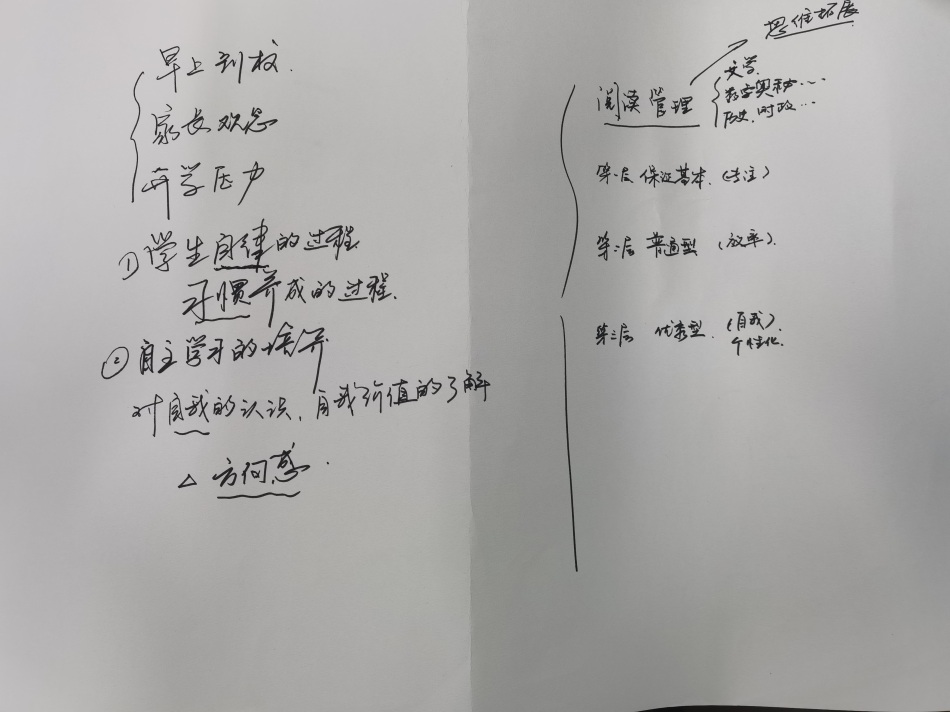 早上到校.
家长观念
升学压力
①学生自律的过程
习惯养成的过程.
②自主学习的培养
对自我的认识、自我价值的了解
△ 方向感.
思维拓展
阅读管理
文学.
数字奥秘...
历史、时政...
第一层 保证基本.(专注)
第二层 普通型 (效率).
第三层 优秀型.(自我).
个性化.